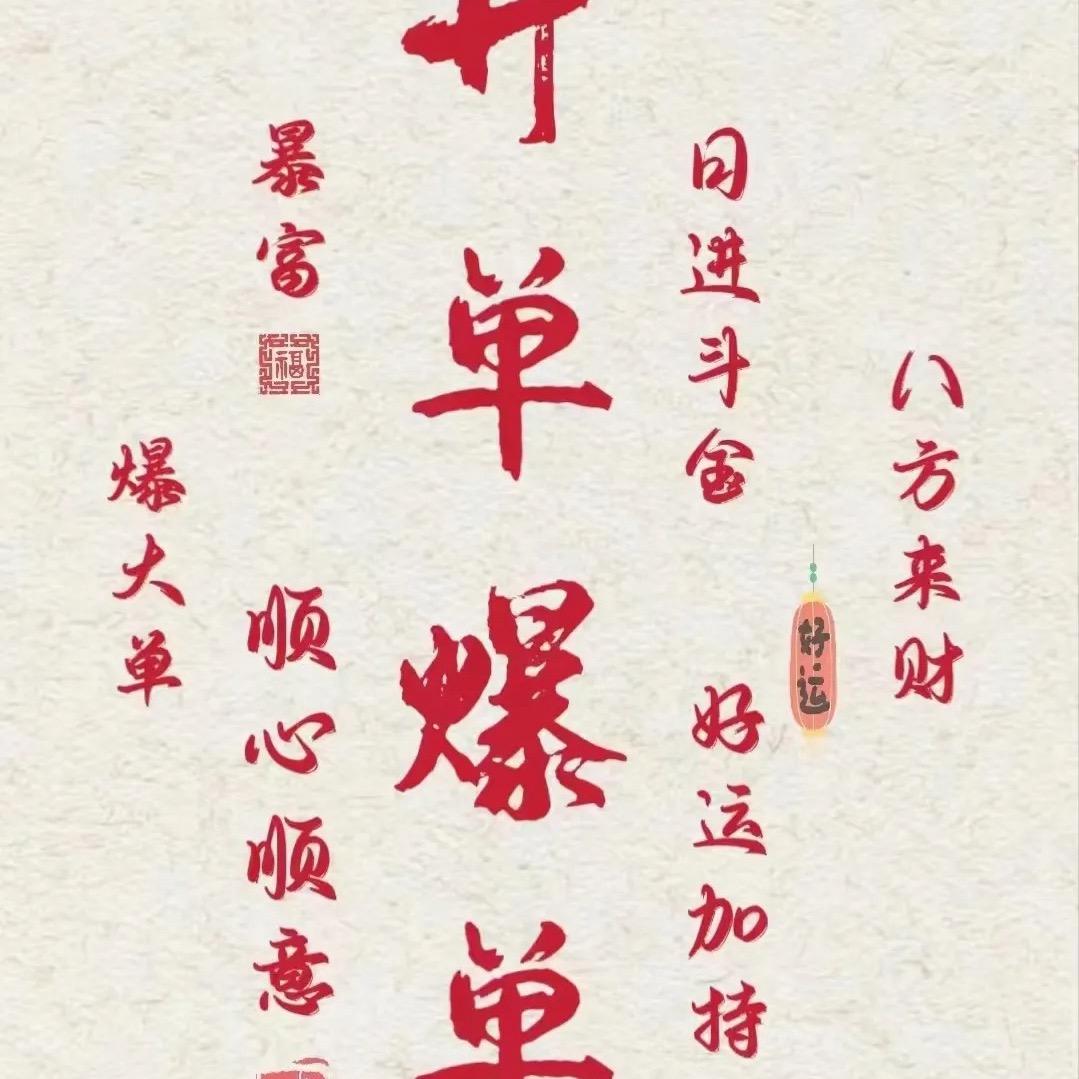 八方来财
日进斗金
好运
好运加持
开单爆单
暴富
福
顺心顺意
爆大单